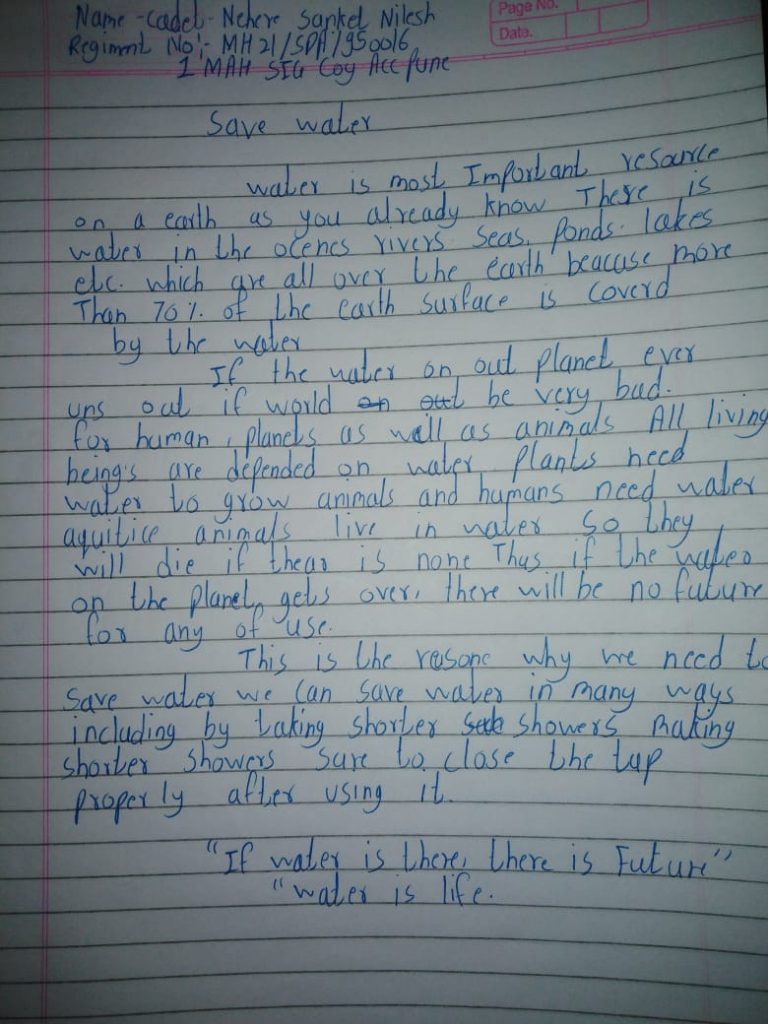 Name - Cadet - Nehere Sanket Nilesh
Page No.
Regimnt No:- MH21/SDA/950016
Date.
1 MAH SIG Coy Acc Pune
Save water
water is most Important resource
on a earth as you already know There is
water in the ocenes rivers seas, Ponds. lakes
etc. which are all over the earth beacuse more
Than 70%. of the earth surface is coverd
by the water
If the water on out planet ever
uns out if world an out be very bad.
for human, planets as well as animals All living
being's are depended on water, plants need
water to grow animals and humans need water
aquitice animals live in water so they
will die if thear is none Thus if the water
on the planet, gets over, there will be no future
for any of use.
This is the resone why we need to
save water we can save water in many ways
including by taking shorter showers Making
shorter showers sure to close the tap
properly after using it.
"If water is there, there is Future"
"water is life.